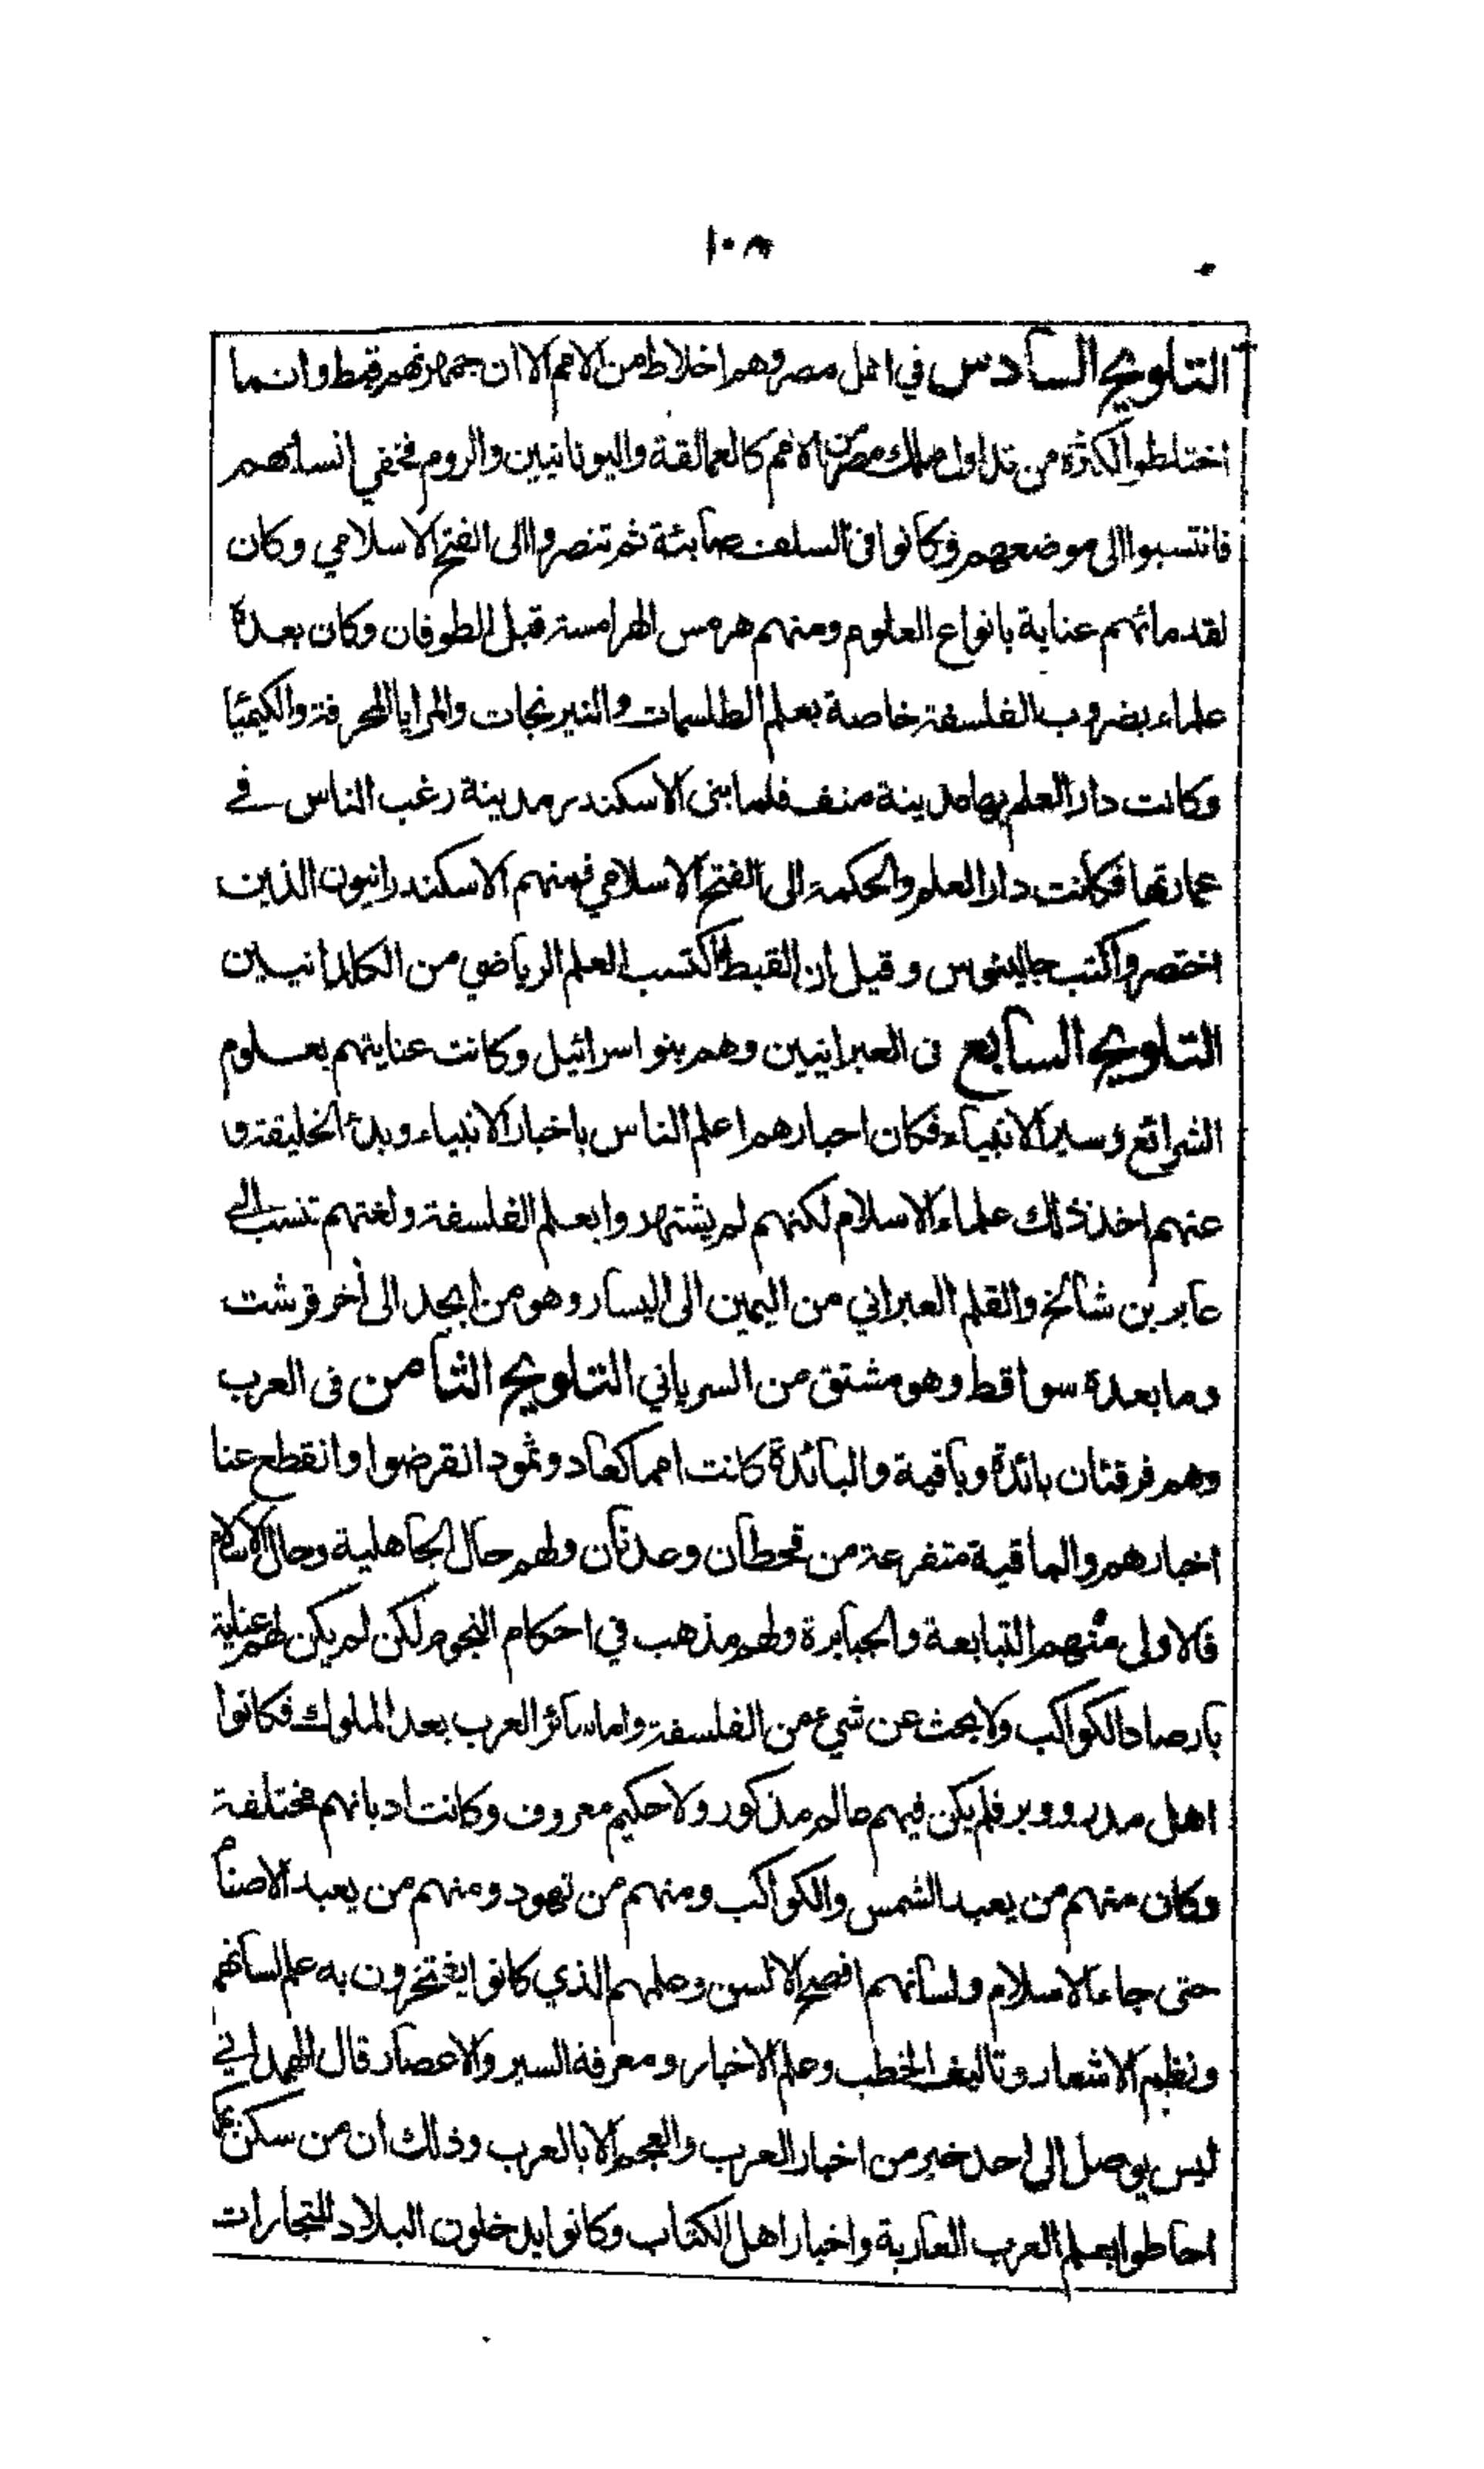 ١٠٨
التلويح السادس في اهل مصر وهم اخلاط من الامم الا ان جمهرتهم قبط وانما
اختلطوا لكثرة من تداول ملك مصر من الامم كالعمالقة واليونانيين والروم فخفي انسابهم
فانتسبوا الى موضعهم وكانوا فى السلف صابئة ثم تنصروا الى الفتح الاسلامي وكان
لقدمائهم عناية بانواع العلوم ومنهم هرمس الهرامسة قبل الطوفان وكان بعده
علماء بضروب الفلسفة خاصة بعلم الطلسمات والنيرنجات والمرايا المحرقة والكيمئيا
وكانت دار العلم بها مدينة منف فلما بنى الاسكندر مدينة رغب الناس في
عمارتها فكانت دار العلم والحكمة الى الفتح الاسلامي فمنهم الاسكندرانيون الذين
اختصروا كتب جالينوس وقيل ان القبط اكتسب العلم الرياضي من الكلدانيين
التلويح السابع فى العبرانيين وهم بنو اسرائيل وكانت عنايتهم بعلوم
الشرائع وسير الانبياء فكان احبارهم اعلم الناس باخبار الانبياء وبدء الخليقة و
عنهم اخذ ذلك علماء الاسلام لكنهم لم يشتهروا بعلم الفلسفة ولغتهم تنسب الى
عابر بن شالخ والقلم العبراني من اليمين الى اليسار وهو من ابجد الى أخر قرشت
وما بعده سواقط وهو مشتق من السرياني التلويح الثامن فى العرب
وهم فرقتان بائدة وباقية والبائدة كانت امما كعاد وثمود انقرضوا وانقطع عنا
اخبارهم والباقية متفرعة من قحطان وعدنان ولهم حال الجاهلية وحال الاسلام
فالاولى منهم التبابعة والجبابرة ولهم مذهب في احكام النجوم لكن لم يكن لهم عناية
بارصاد الكواكب ولا بحث عن شيء من الفلسفة واما سائر العرب بعد الملوك فكانوا
اهل مدر ووبر فلم يكن فيهم عالم مذكور ولا حكيم معروف وكانت اديانهم مختلفة
وكان منهم من يعبد الشمس والكواكب ومنهم من تهود ومنهم من يعبد الاصنام
حتى جاء الاسلام ولسانهم افصح الالسن وعلمهم الذي كانوا يفتخرون به علم لسانهم
ونظم الاشعار وتاليف الخطب وعلم الاخبار ومعرفة السير والاعصار قال الهمداني
ليس يوصل الى احد خبر من اخبار العرب والعجم الا بالعرب وذلك ان من سكن
احاطوا بعلم العرب العاربة واخبار اهل الكتاب وكانوا يدخلون البلاد للتجارات